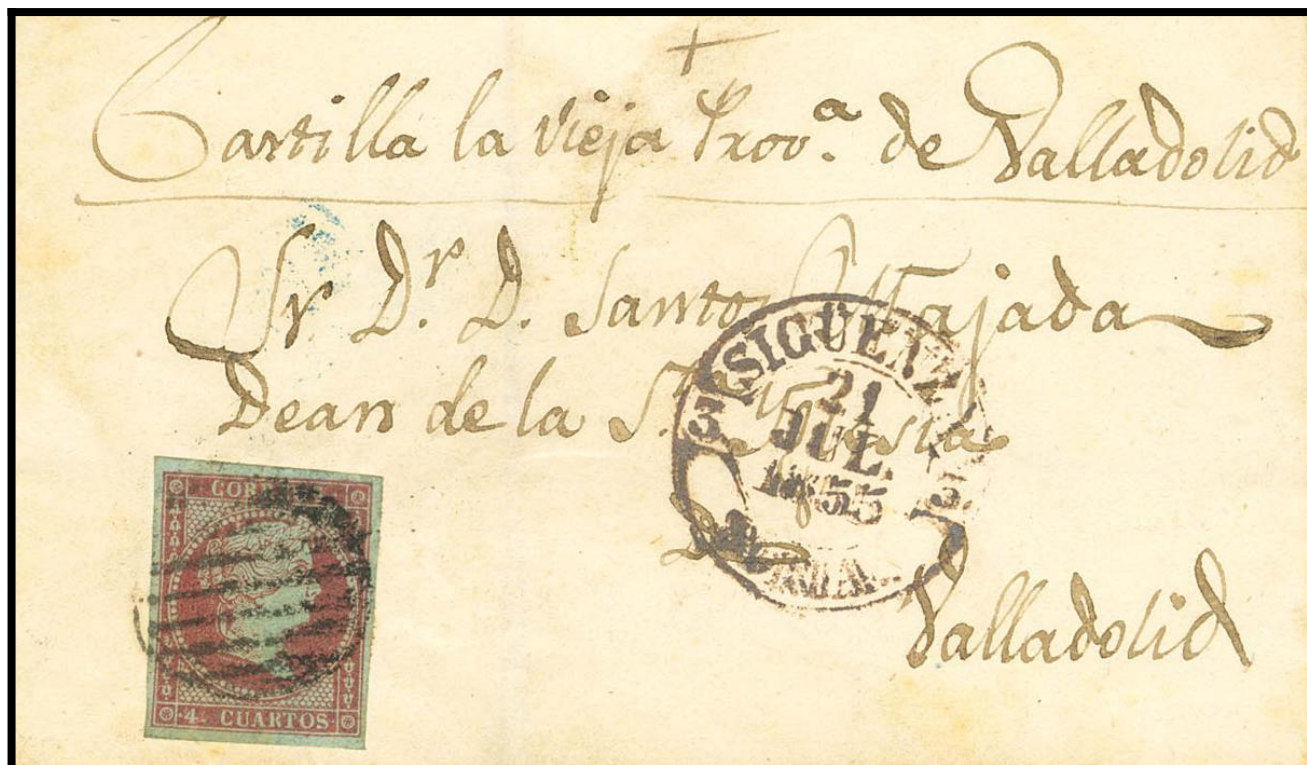 Castilla la vieja Prov.ª de Valladolid
Sr Dr. D. Santos Majada
Dean de la Sta Iglesia
de
Valladolid
SIGÜENZA
21
JUL.
1855
3 3
CORREOS
4 CUARTOS